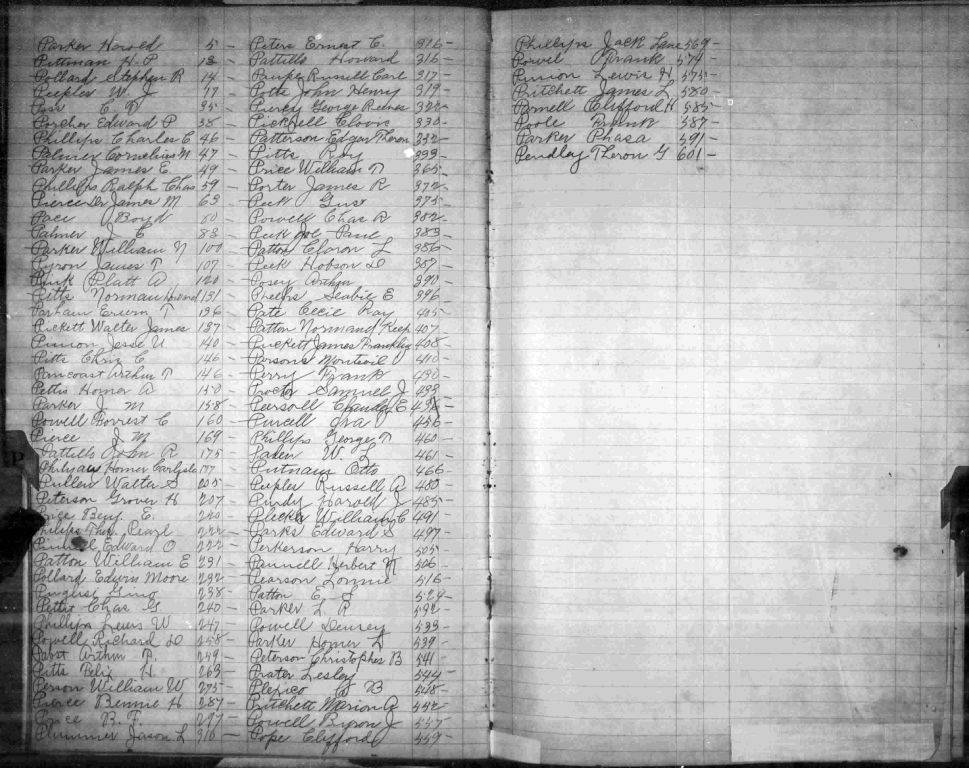 Parker Harold 5 -
Pittman H. P. 13 -
Pollard Stephen R 14 -
Peepler W. J. 17 -
Poss E. P. 35 -
Porcher Edward P 38 -
Phillips Charles C 46 -
Palmer Cornelius N 47 -
Parker James E. 49 -
Phillips Ralph Chas 59 -
Pierce Dr James M 63 -
Pace Boyd 80 -
Palmer J. E. 83 -
Parker William N 100 -
Pyron James T 107 -
Platt A 120 -
Pitts Norman 131 -
Parham T 136 -
Pickett Walter James 137 -
Pinion Jesse U 140 -
Pitts Chriz C 146 -
Pancoast Arthur T 146 -
Pettis Homer A 150 -
Parker J. M 158 -
Powell Forrest C 160 -
Pierce J. M. 169 -
Pattillo John R 175 -
Philyaw Homer Carlyle 177 -
Pullen Walter S 205 -
Peterson Grover H 207 -
Price Benj. E. 220 -
Phillips Pearl 222 -
Edward O 222 -
Patton William E 231 -
Pollard Edwin Moore 232 -
Gino 238 -
Pettit Chas G 240 -
Phillips Lewis W 247 -
Powell Richard D 258 -
Pabst Arthur P. 259 -
Pitts H. 263 -
Person William W 275 -
Pierce Bennie H 287 -
B. F. 297 -
Plummer Jason L 310 -
Peters Ernest C. 316 -
Pattillo Howard 316 -
Russell Carl 317 -
Potts John Henry 319 -
George 322 -
330 -
Patterson Edgar Theron 332 -
Pitts Roy 333 -
Price William T 365 -
Porter James R 372 -
Peck Gust 375 -
Powell Chas R 382 -
Peek Joe Paul 383 -
Patton L 386 -
Peek Hobson D 387 -
Posey Arthur 390 -
Phelps E 396 -
Pate Cecil Ray 405 -
Patton Normand 407 -
Puckett James Franklin 408 -
Persons 410 -
Perry Frank 430 -
Proctor Samuel J. 433
Pearsoll Claude E 436
Purcell Ira 456 -
Phillips George T 460 -
W. L 461 -
Putnam Otto 466 -
Pepler Russell A 480 -
Purdy Harold J 485 -
William C 491 -
Parks Edward S 497 -
Perkerson Harry 505 -
Pannell Herbert N 506 -
Pearson Lonnie 516 -
Patton E. L 529 -
Parker L. R 532 -
Powell Dewey 533 -
Parker Homer H 539 -
Peterson Christopher B 541 -
Prater Lesley 544 -
B 548 -
Pritchett Marion 552 -
Powell Byron J 557 -
Pope Clifford 559 -
Phillips Jack Lane 569 -
Powel Frank 574 -
Pinion Lewis H 575 -
Pritchett James L 580 -
Pannell Clifford H 585 -
Poole Frank 587 -
Parker Phasa 591 -
Pendley Theron G 601 -
P